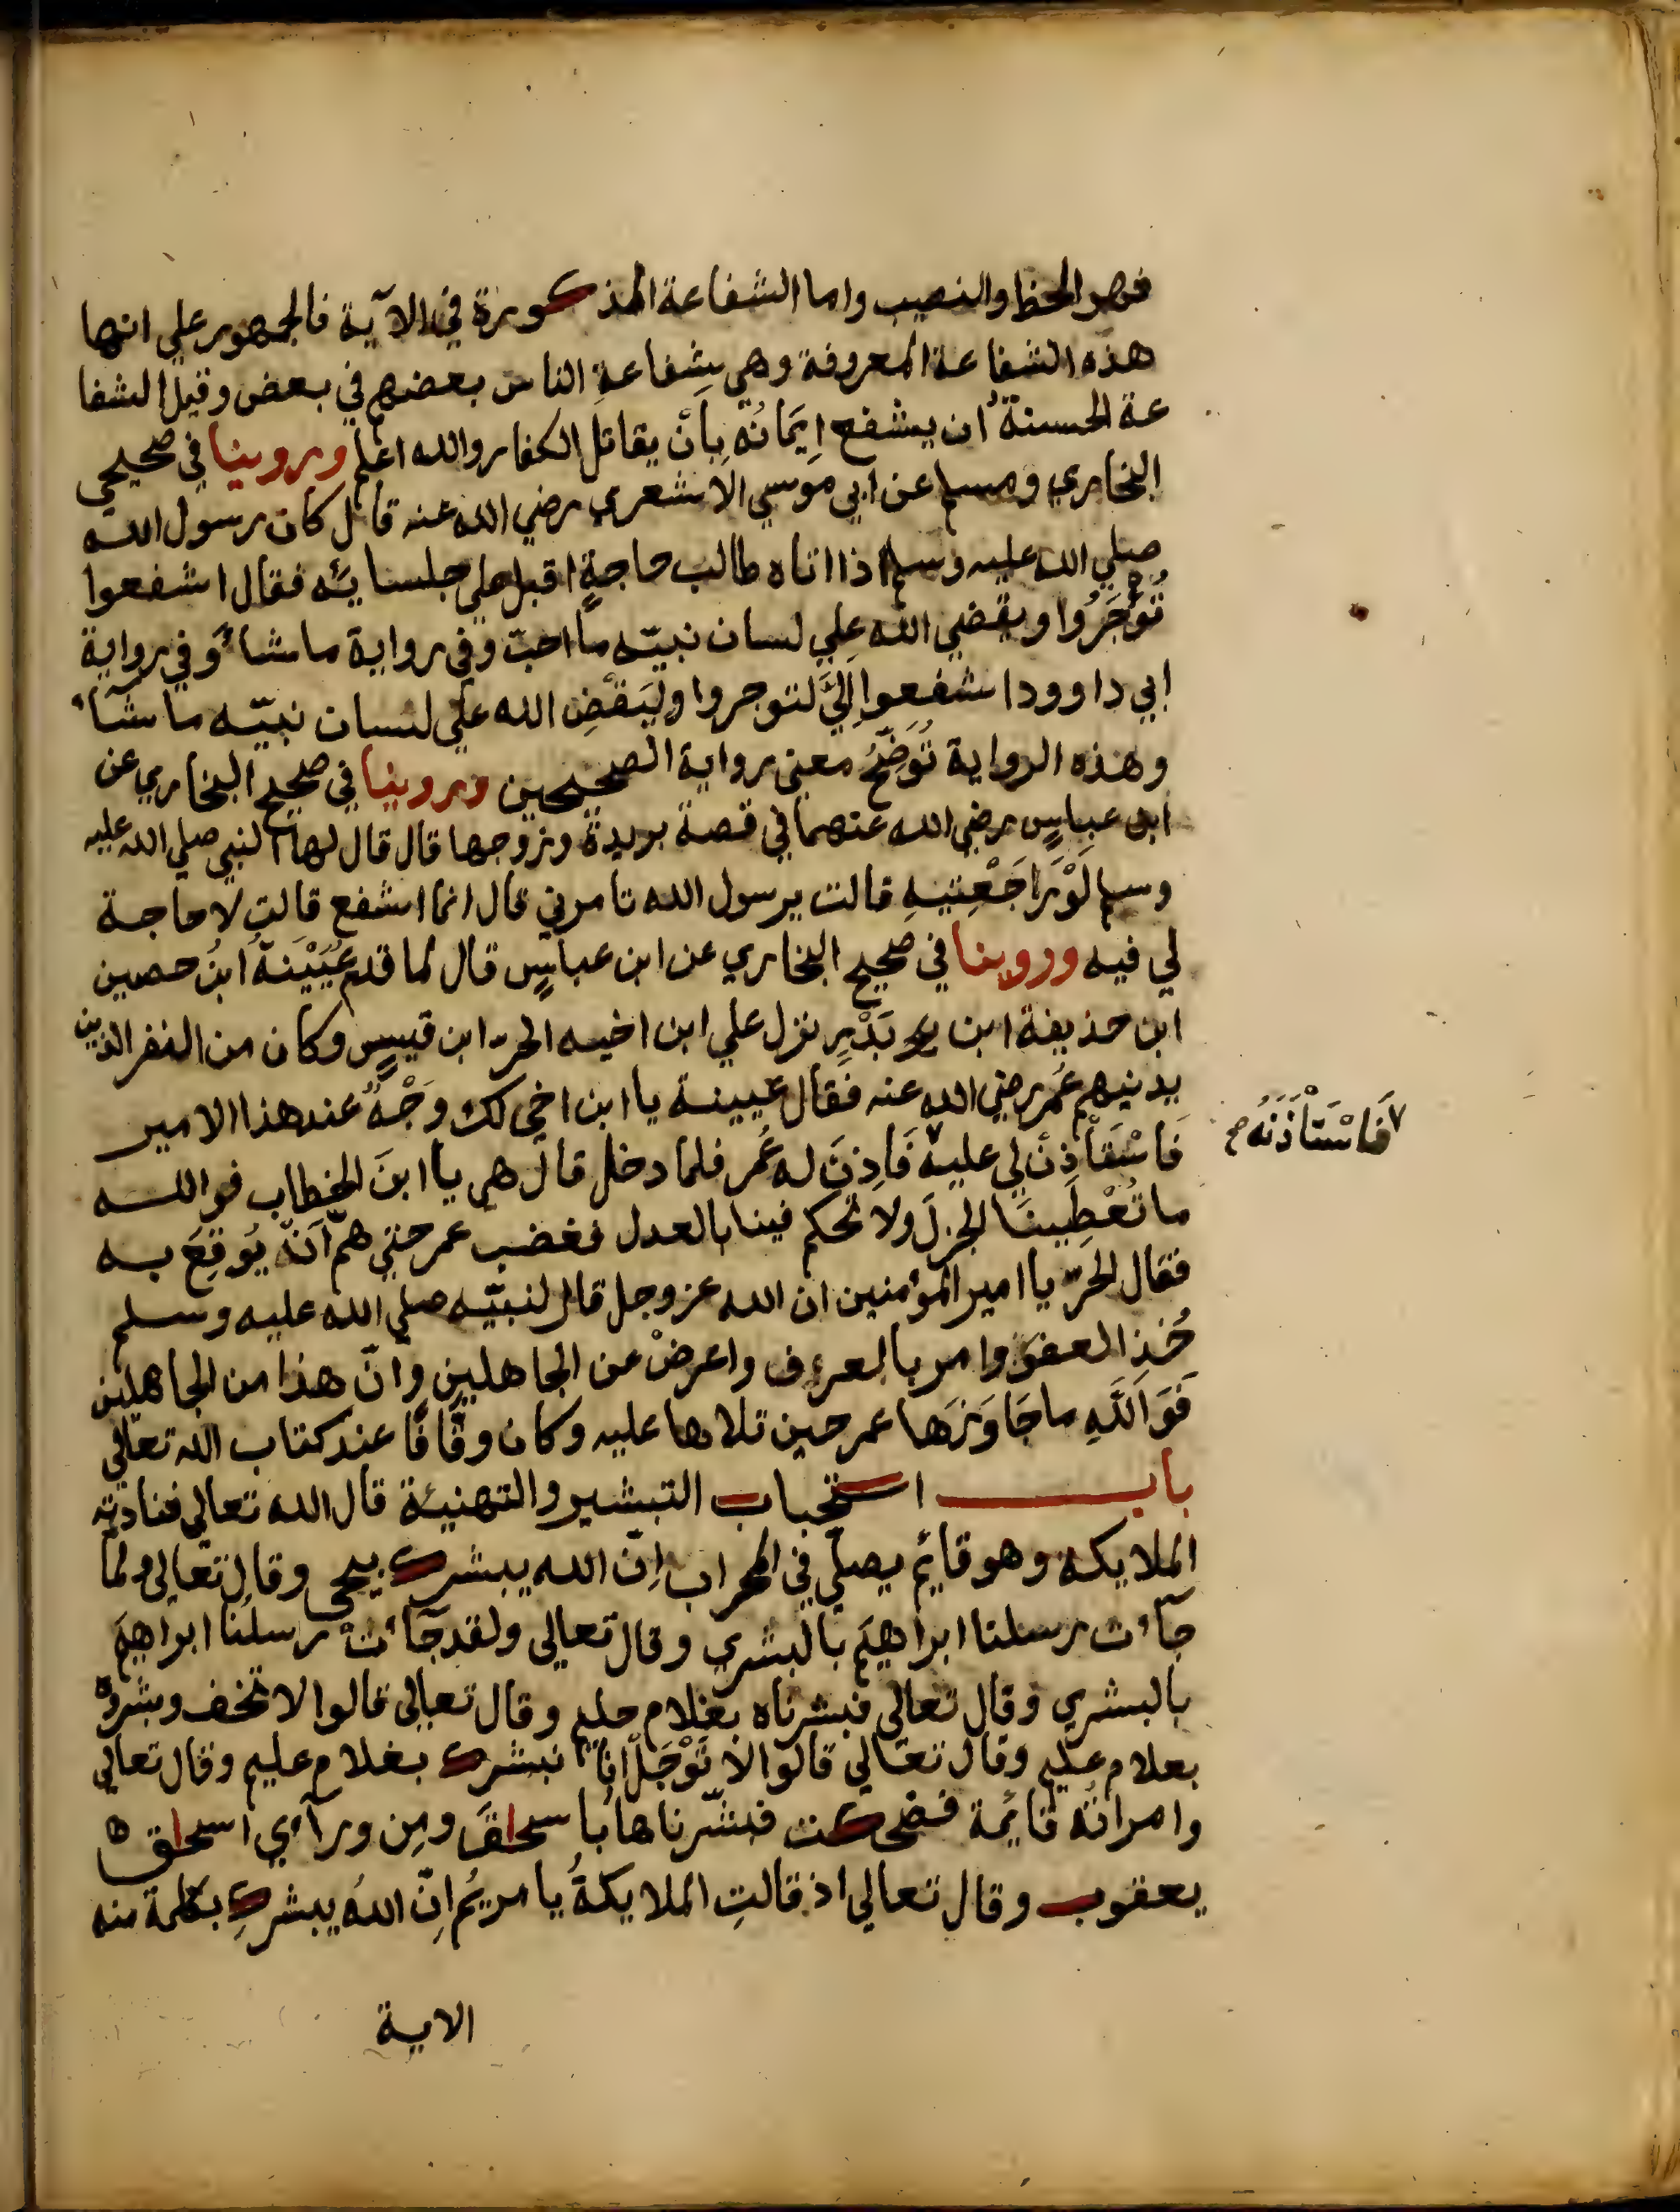 فهو الحظ والنصيب واما الشفاعة المذكورة في الآية فالجمهور علي انها
هذه الشفاعة المعروفة وهي شِفاعةِ الناس بعضهم في بعض وقيل الشفا
عة الحسنةُ ان يشفع اِيمَانُهُ بِاَنْ يقاتل الكفار والله اعلم وروينا في صحيحي
البخاري ومسلم عن ابي موسي الاشعري رضي الله عنه قال كان رسول الله
صلي الله عليه وسلم اذا اتاه طالب حاجةٍ اقبل علي جلسائه فقال اشفعوا
تُوْجَرُوا ويقضي الله علي لسان نبيّه ما احبّ وفي رواية ماشاء وفي رواية
ابي داوود اشفعوا اِلَيَّ لتوجروا ولْيَقْضِ الله علي لسان نبيّه ماشآء
وهذه الرواية تُوَضِّحُ معني رواية الصحيحين وروينا في صحيح البخاري عن
ابن عباسٍ رضي الله عنهما في قصة بريدة وزوجها قال قال لها النبي صلي الله عليه
وسلم لَوْرَاجَعْتِيهِ قالت يرسول الله تامرني قال انما اشفع قالت لا حاجة
لي فيه وروينا في صحيح البخاري عن ابن عباسٍ قال لما قدم عُيَيْنَةُ ابنُ حصين
ابن حذيفة ابن بَدْرٍ نزل علي ابن اخيه الحرّ ابن قيسٍ وكان من النفر الذين
يدنيهم عُمر رضي الله عنه فقال عيينة يا ابن اخي لك وَجْهٌ عند هذا الامير
فَاسْتَاْذِنْ لي عليه ٧ فَاَذِنَ له عُمر فلما دخل قال هي يا ابنَ الخطاب فوالله
٧ فَاسْتَاْذَنَهُ صح
ما تُعْطِينَا الجزلَ ولا تحكم فينا بالعدل فغضب عمر حتي همّ اَنْ يُوقِعَ به
فقال الحرّ يا امير المؤمنين ان الله عز وجل قال لنبيّه صلي الله عليه وسلم
خُذِ العفوَ وامر بالعرف واعرضْ عن الجاهلين وانّ هذا من الجاهلين
فَوَاللَّهِ ماجَاوَزَها عمر حين تلاها عليه وكان وقَّافًا عند كتاب الله تعالي
باب استحباب التبشير والتهنيئة قال الله تعالي فنادته
الملايكة وهو قايم يصلّي في المحراب اِنّ الله يبشرك بيحي وقال تعالي ولما
جآءت رسلنا ابراهيم بالبشري وقال تعالي ولقد جآءت رسلُنا ابراهيمَ
بالبشري وقال تعالي فبشرناه بغلام حليم وقال تعالي قالوا لا تخف وبشروه
بغلام عليم وقال تعالي قالوا لا تَوْجَلْ انّا نبشرك بغلام عليم وقال تعالي
وامراته قائمة فضحكت فبشّرناها باسحاقَ ومِن ورآءي اسحاق
يعقوب وقال تعالي اذ قالتِ الملايكةُ يا مريمُ اِنّ اللهَ يبشركِ بكلمة منه
الاية